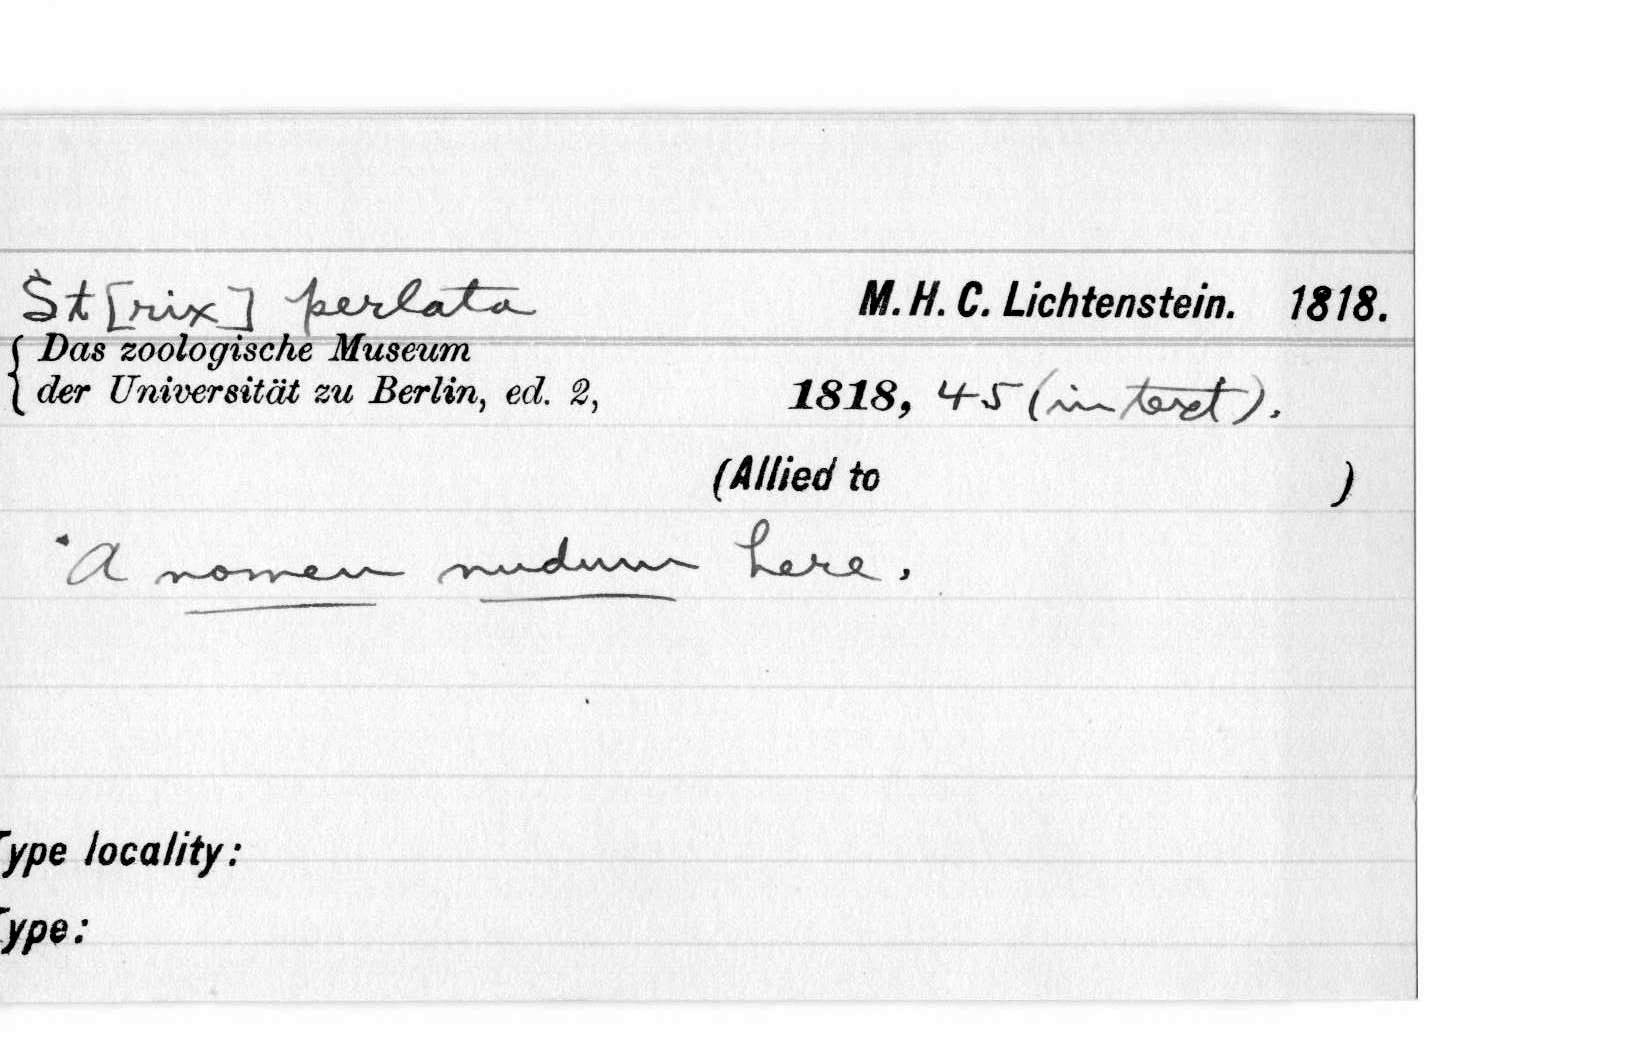 St[rix] perlata M. H. C. Lichtenstein. 1818.
{ Das zoologische Museum
der Universität zu Berlin, ed. 2, 1818, 45 (in text).
(Allied to )
A nomen nudum here.
Type locality:
Type: